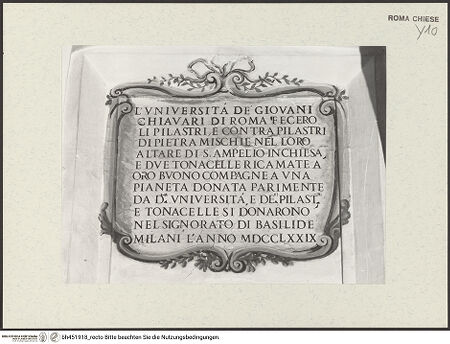 ROMA CHIESE
L'VNIVERSITÁ DE GIOVANI
CHIAVARI DI ROMA FECERO
LI PILASTRI, E CONTRAPILASTRI
DI PIETRA MISCHIE NEL LORO
ALTARE DI S. AMPELIO IN CHIESA,
E DVE TONACELLE RICAMATE A
ORO BVONO COMPAGNE A VNA
PIANETA DONATA PARIMENTE
DA D.ᵃ VNIVERSITÁ, E DE PILAST.ⁱ
E TONACELLE SI DONARONO
NEL SIGNORATO DI BASILIDE
MILANI L'ANNO MDCCLXXIX
bh451918_recto Bitte beachten Sie die Nutzungsbedingungen.